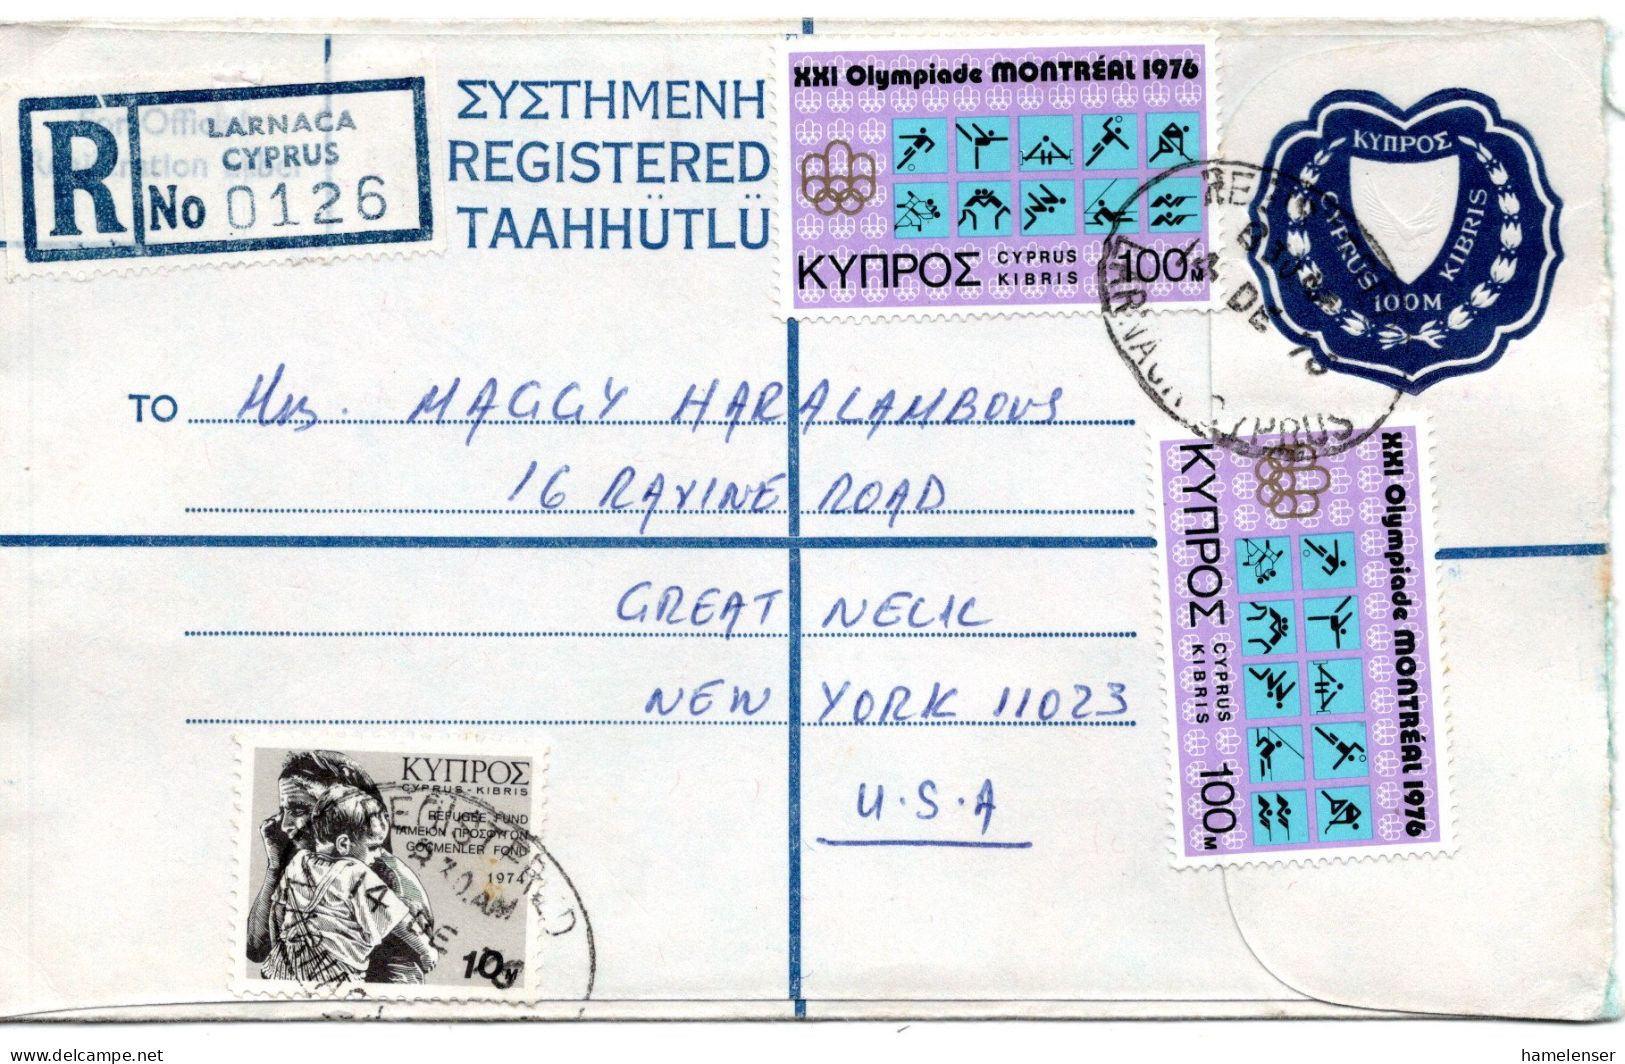 R
LARNACA
CYPRUS
No 0126
ΣΥΣΤΗΜΕΝΗ
REGISTERED
TAAHHÜTLÜ
XXI Olympiade MONTRÉAL 1976
ΚΥΠΡΟΣ CYPRUS KIBRIS 100M
ΚΥΠΡΟΣ
CYPRUS KIBRIS
100M
TO Mrs. MAGGY HARALAMBOUS
16 RAVINE ROAD
GREAT NECK
NEW YORK 11023
U.S.A
XXI Olympiade MONTRÉAL 1976
ΚΥΠΡΟΣ CYPRUS KIBRIS 100M
ΚΥΠΡΟΣ
CYPRUS - KIBRIS
REFUGEE FUND
ΤΑΜΕΙΟΝ ΠΡΟΣΦΥΓΩΝ
GOÇMENLER FONU
1974
10M
REGISTERED
8 30.AM
14 DE
CYPRUS
14 DE 76
hamelenser
delcampe.net